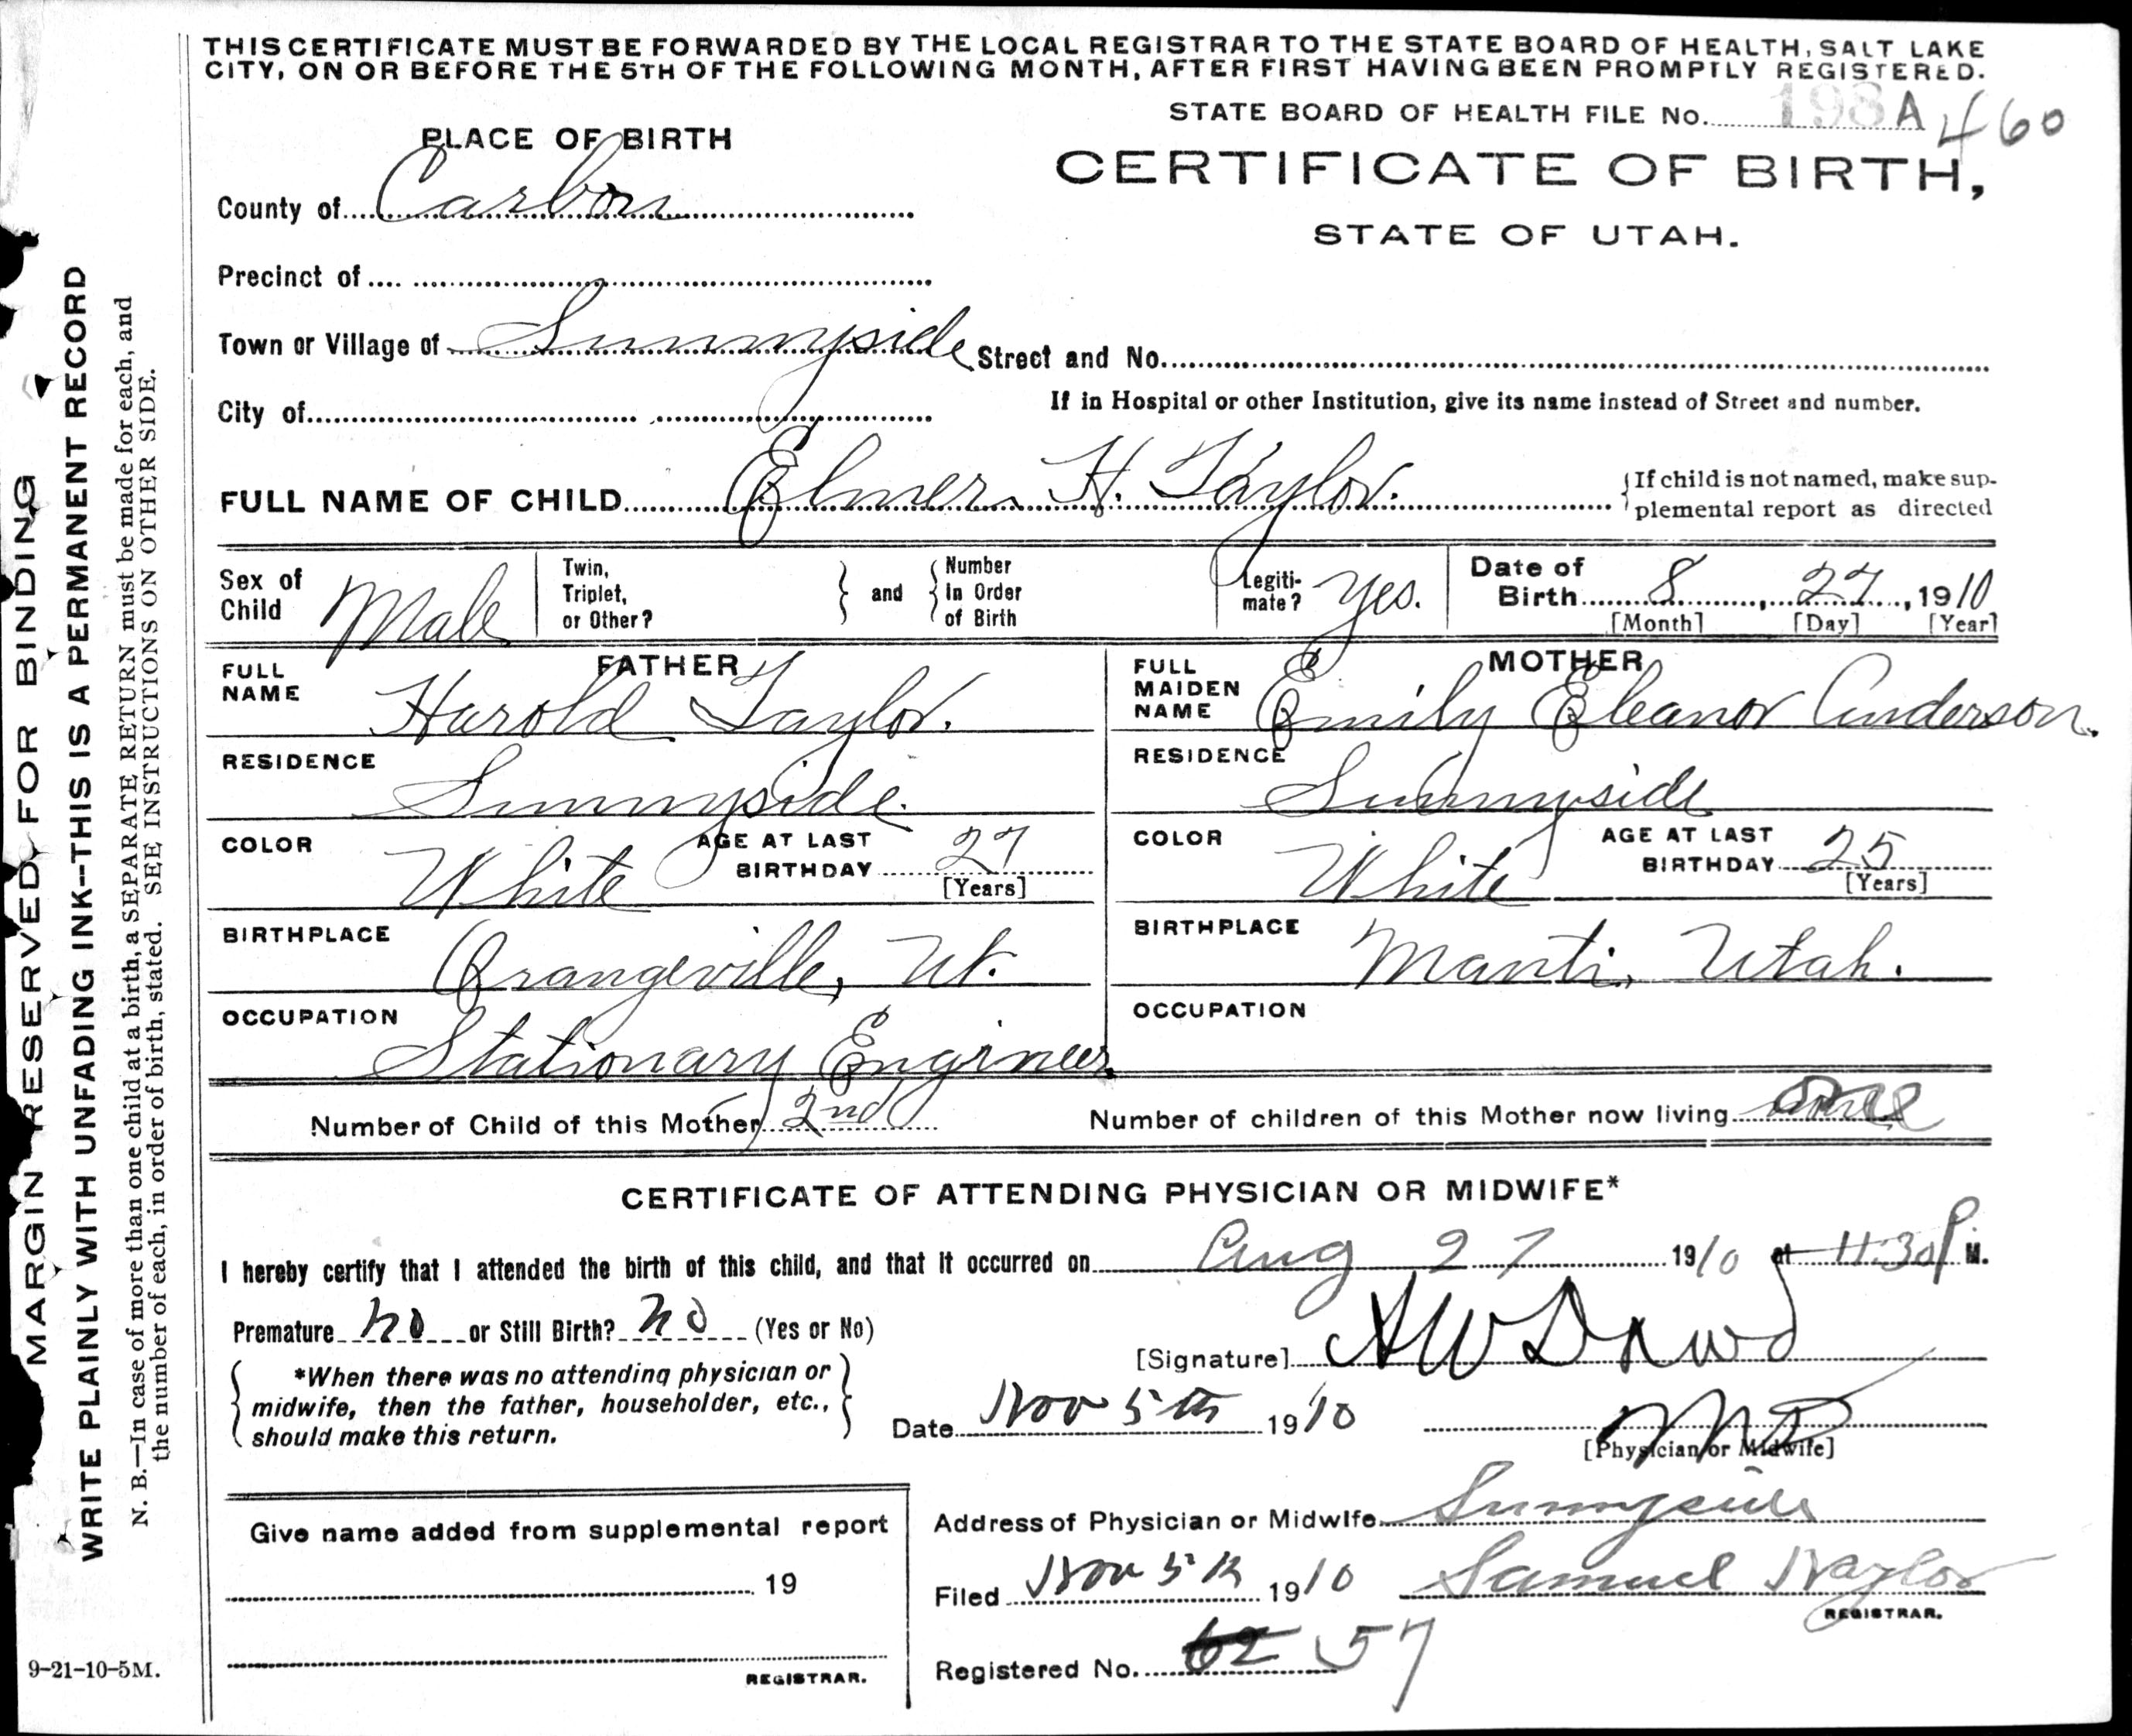 THIS CERTIFICATE MUST BE FORWARDED BY THE LOCAL REGISTRAR TO THE STATE BOARD OF HEALTH, SALT LAKE
CITY, ON OR BEFORE THE 5TH OF THE FOLLOWING MONTH, AFTER FIRST HAVING BEEN PROMPTLY REGISTERED.
STATE BOARD OF HEALTH FILE No. 198 A 460
PLACE OF BIRTH
CERTIFICATE OF BIRTH,
STATE OF UTAH.
County of Carbon
Precinct of
Town or Village of Sunnyside Street and No.
City of
If in Hospital or other Institution, give its name instead of Street and number.
FULL NAME OF CHILD Elmer H. Taylor.
If child is not named, make sup-
plemental report as directed
Sex of Child Male
Twin, Triplet, or Other?
and
Number In Order of Birth
Legiti-mate? Yes.
Date of Birth 8, 27, 1910
[Month] [Day] [Year]
FATHER
FULL NAME Harold Taylor.
RESIDENCE Sunnyside.
COLOR White AGE AT LAST BIRTHDAY 27
[Years]
BIRTHPLACE Orangeville, Ut.
OCCUPATION Stationary Engineer
MOTHER
FULL MAIDEN NAME Emily Eleanor Anderson.
RESIDENCE Sunnyside
COLOR White AGE AT LAST BIRTHDAY 25
[Years]
BIRTHPLACE Manti, Utah.
OCCUPATION
Number of Child of this Mother 2nd Number of children of this Mother now living
CERTIFICATE OF ATTENDING PHYSICIAN OR MIDWIFE*
I hereby certify that I attended the birth of this child, and that it occurred on Aug 27 1910 at 11:30 P. M.
Premature no or Still Birth? no (Yes or No)
[Signature] A W Dowd
*When there was no attending physician or
midwife, then the father, householder, etc.,
should make this return.
Date Nov 5th 1910 MD
[Physician or Midwife]
Give name added from supplemental report
19
REGISTRAR.
Address of Physician or Midwife Sunnyside
Filed Nov 5th 1910 Samuel Naylor
REGISTRAR.
Registered No. 62 57
9-21-10-5M.
MARGIN RESERVED FOR BINDING
WRITE PLAINLY WITH UNFADING INK--THIS IS A PERMANENT RECORD
N. B.—In case of more than one child at a birth, a SEPARATE RETURN must be made for each, and
the number of each, in order of birth, stated. SEE INSTRUCTIONS ON OTHER SIDE.